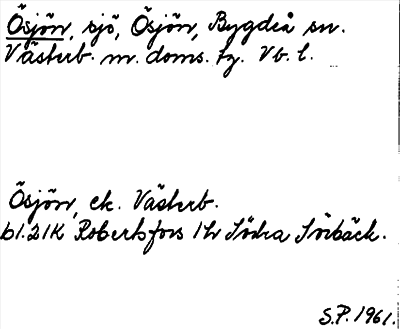 Ösjön, sjö, Ösjön, Bygdeå sn.
Västerb. m. doms. tg. Vb. l.
Ösjön, ek. Västerb.
bl. 21K Robertsfors 1 hr Södra Sörbäck.
S.P. 1961.